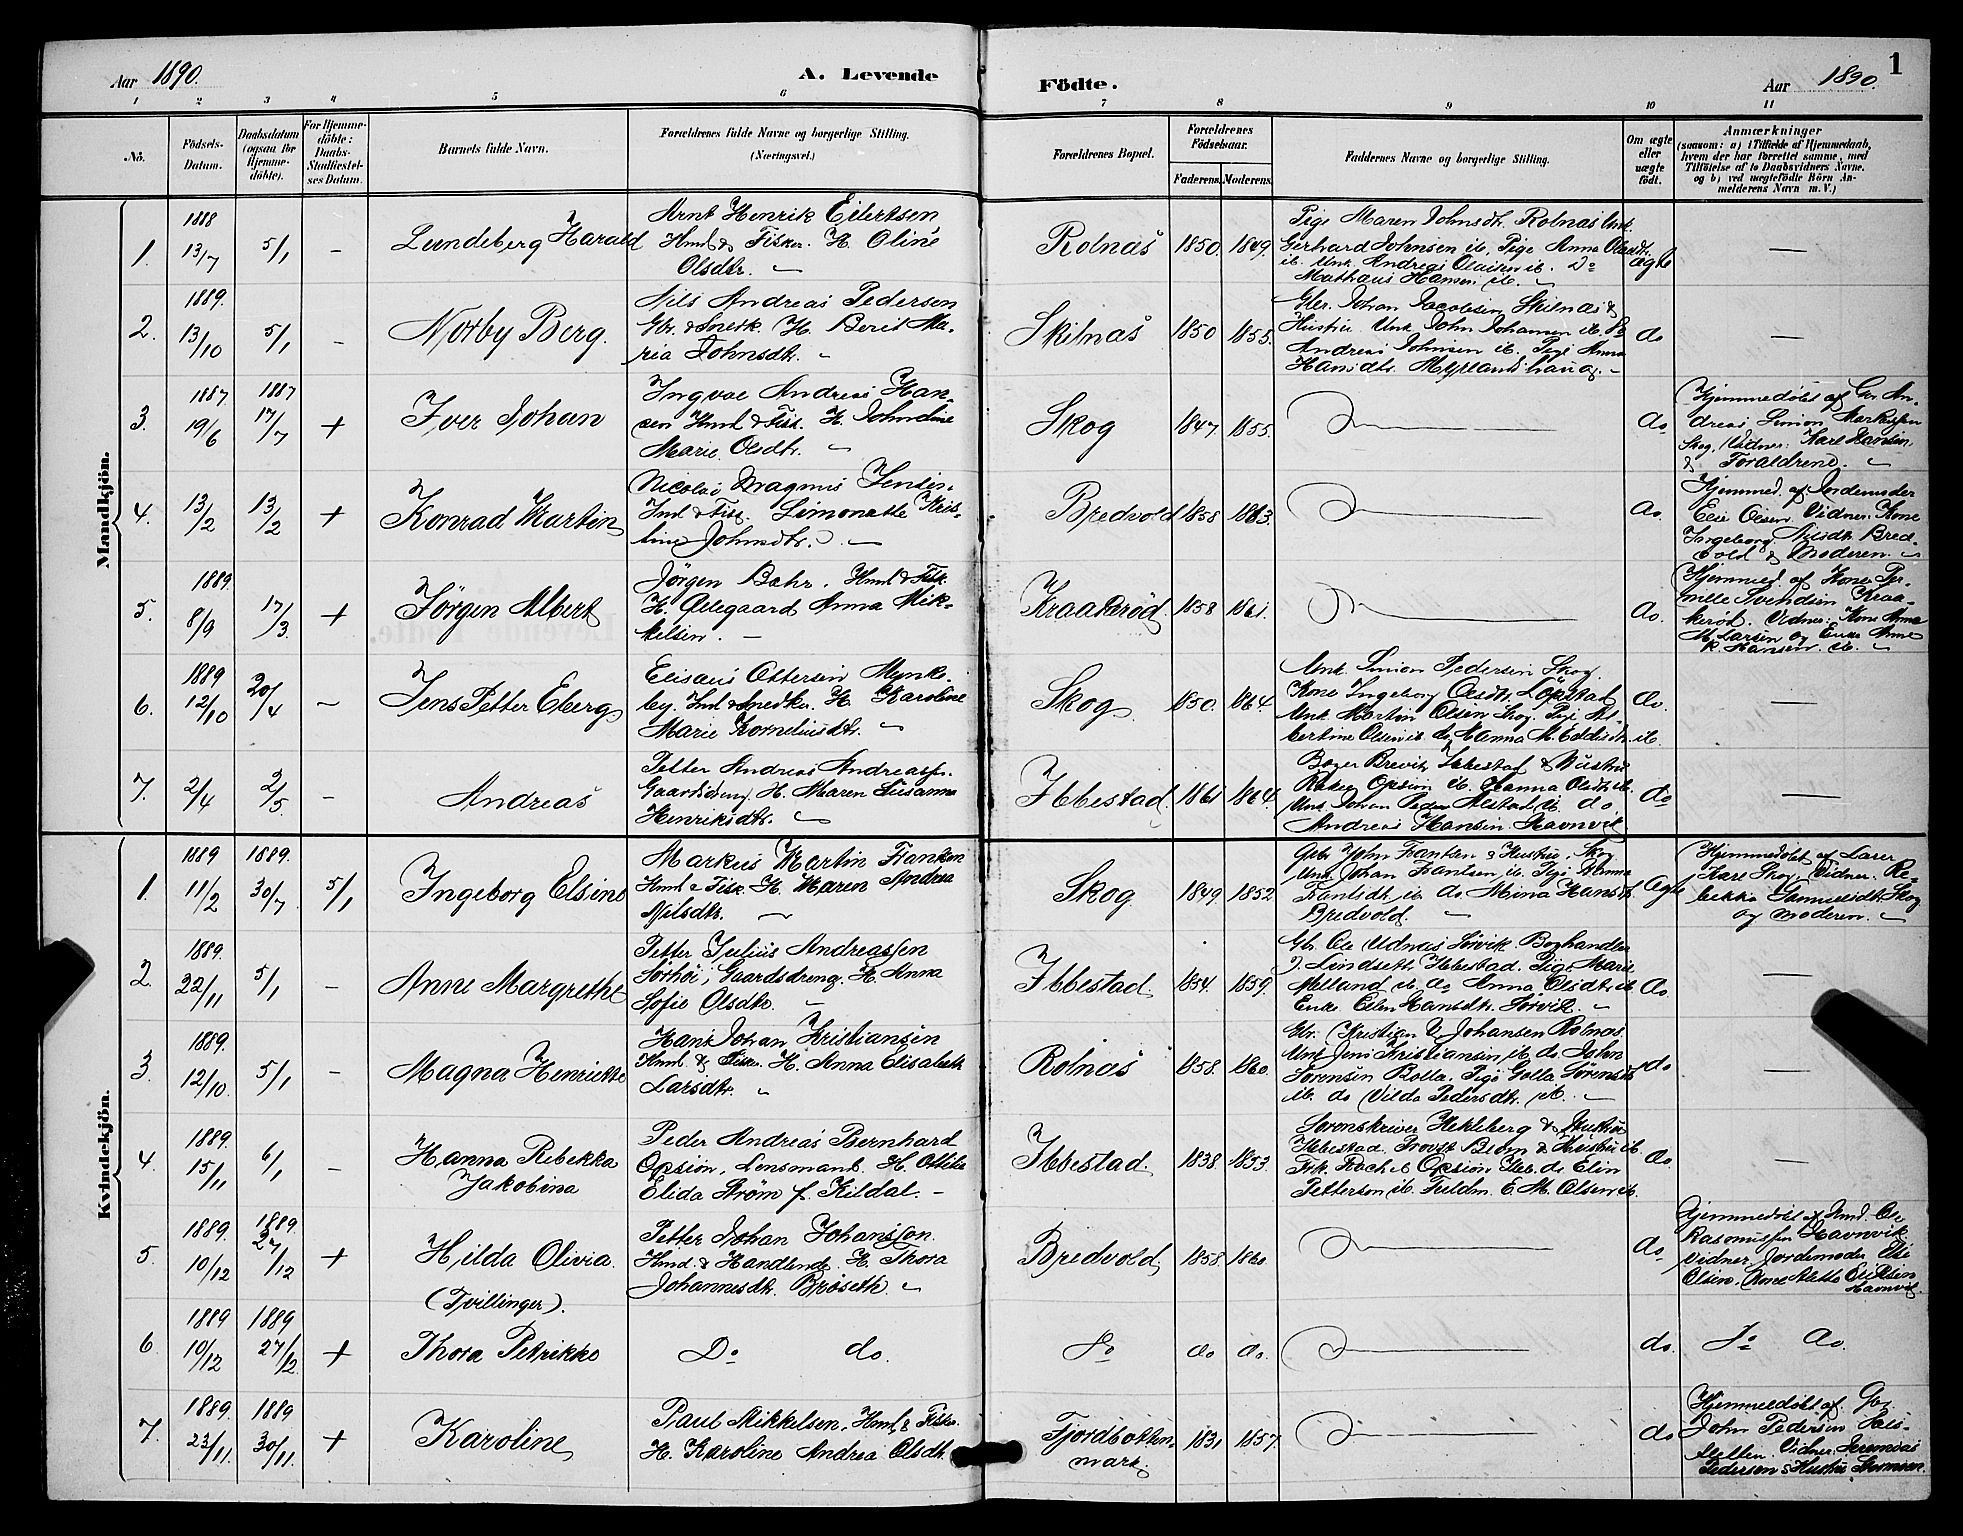 Aar 1890. A. Levende Födte. Aar 1890. 1
1 2 3 4 5 6 7 8 9 10 11
No.
Födsels-Datum.
Daabsdatum (ogsaa for Hjemme-döbte).
For Hjemme-döbte: Daabs-Stadfæstel-ses Datum.
Barnets fulde Navn.
Forældrenes fulde Navne og borgerlige Stilling.
(Næringsvei.)
Forældrenes Bopæl.
Forældrenes Födselsaar.
Faderens. Moderens.
Faddernes Navne og borgerlige Stilling.
Om ægte eller uægte födt.
Anmærkninger
(saasom: a) i Tilfælde af Hjemmedaab,
hvem der har forrettet samme, med
Tilföielse af to Daabsvidners Navne.
og b) ved uægtefödte Börn An-
melderens Navn m. V.)
Mandkjön.
1. 1888 13/7 5/1 - Lundeberg Harald
Arnt Henrik Eilertsen
Hml & Fisker. H. Oline
Olsdtr.
Rolnäs 1850. 1849.
Pige Maren Johnsdtr. Rolnäs Unk.
Gerhard Johnsen ib. Pige Anna Olsdtr.
ib. Unk. Andreas Olaisen ib. Do
Mathæus Hansen ib.
ægte —
2. 1889. 13/10 5/1 - Norby Berg.
Nils Andreas Pedersen
Gbr. & Snedk. H. Berit Ma-
ria Johnsdtr.
Skilnäs 1850 1855.
Gbr. Johan Jacobsen Skilnäs &
Hustru. Unk John Johansen ib. Do
Andreas Johnsen ib. Pige Anna
Hansdtr. Myrlandshaug.
do —
3. 1887. 19/6 1887 17/7 + Iver Johan
Ingvar Andreas Han-
sen Hml & Fisk. H. Johndine
Marie Olsdtr.
Skog 1847. 1855. — do.
Hjemmedöbt af Gr. An-
dreas Simon Markussen
Skog. Vidner: Karl Hansen,
& Forældrene.
4. 13/2 13/2 + Konrad Martin
Nicolai Magnus Jensen
Inl & Fisk Simonette Kris-
tine Johnsdtr.
Bredvold 1858 1863. — do.
Hjemmed. af Jordemoder
Else Olsen. Vidner: Kone
Ingeborg Nilsdtr. Bred-
vold & Moderen.
5. 1889. 8/9 17/3. + Jörgen Albert
Jörgen Bahr. Hml & Fisk.
H. Ovegaard Anna Mik-
kelsen.
Kraakröd. 1858 1861. — do.
Hjemmed. af Kone Per-
nille Svendsen Kraa-
keröd. Vidner: Kone Anna
M. Larsen og Enke Anne
K. Hansen. ib.
6. 1889 12/10 20/4 - Jens Petter Eberg
Elisæus Ottersen Mynke-
by. Inl & Snedker. H. Karoline
Marie Korneliusdtr.
Skog 1850. 1864.
Unk. Simon Pedersen Skog.
Kone Ingeborg Olsdtr. Löpstad
Unk. Martin Olsen Skog. Pige Al-
bertine Olsen ib. do Hanna M. ib.
do. —
7. 2/4 2/5 - Andreas
Petter Andreas Andreass.
Gaardsdreng. H. Maren Susanna
Henriksdtr.
Ibbestad. 1861 1864.
Bager Brevik Ibbestad & Hustru
Opsion ib. Hanna Olsdtr. ib.
Unk. Johan Peder Alstad ib. do
Andreas Hansen Havnvik
do —
Kvindekjön.
1. 1889 11/2 1889. 30/7 5/1 Ingeborg Elsine
Markus Martin Frantzen
Hml & Fisk. H. Maren Andrea
Nilsdtr.
Skog 1849 1852
Gbr John Frantsen & Hustru, Skog
Unk. Johan Frantsen ib. Pige Anna
Frantsdtr ib. do. Mina Hansdtr.
Bredvold.
Ægte
Hjemmedöbt af Lærer
Karl Skog. Vidner. Re-
bekka Samuelsdtr. Skog
og Moderen.
2. 1889. 22/11 5/1 - Anne Margrethe
Petter Julius Andreassen
Sörhöi, Gaardsdreng. H. Anna
Sofie Olsdtr.
Ibbestad. 1854. 1859.
Gbr. Ole Udnäs Sörvik. Boghandler
J. Lindseth Ibbestad. Pige Marie
Melland ib. do Anna Olsdtr. ib
Enke Elen Hansdtr. Sörvik.
do. —
3. 1889. 12/10. 5/1 - Magna Henriette
Hans Johan Kristiansen
Hml. & Fisker. H. Anna Elisabeth
Larsdtr.
Rolnäs 1858. 1860.
Gbr. Kristian U Johansen Rolnäs.
Unk Jens Kristiansen ib. do. John
Sörensen Bolla. Pige Golla Sörensd
ib. do Vilda Pedersdtr. ib.
do —
4. 1889. 15/11 6/1 - Hanna Rebekka
Jakobina
Peder Andreas Bernhard
Opsion, Lensmand. H. Ottilie
Elida Ström f. Kildal. -
Ibbestad. 1838. 1853.
Sorenskriver Hekleberg & Hustru
Ibbestad. Provst Blom & Hustru ib.
Frk. Rachel Opsion Ibb. do. Elin
Petterson ib. Fuldm. E. M. Olsen ib.
do. —
5. 1889. 10/12 1889. 27/12 + Hilda Olivia.
(Tvillinger).
Petter Johan Johanssøn.
Hmd. & Handlende H. Thora
Johannesdtr. Bröseth.
Bredvold 1858. 1860. — do
Hjemmedöbt af Hmd. Ole
Rasmussen Havnvik
Vidner Jordemoder Else
Olsen, Anne Mette Eriksen
Havnvik.
6. 1889 10/12 1889 27/12. + Thora Petrikke
Do do. Do do do. — do. Do do.
7. 1889. 23/11. 1889 30/11. + Karoline
Paul Mikkelsen, Hml & Fisker.
H. Karoline Andrea Olsdtr.
Fjordbotten-
mark. 1831 1857. — do
Hjemmedöbt af. Gbr
John Pedersen
Vidner. Jeremias
Pedersen & Hustru